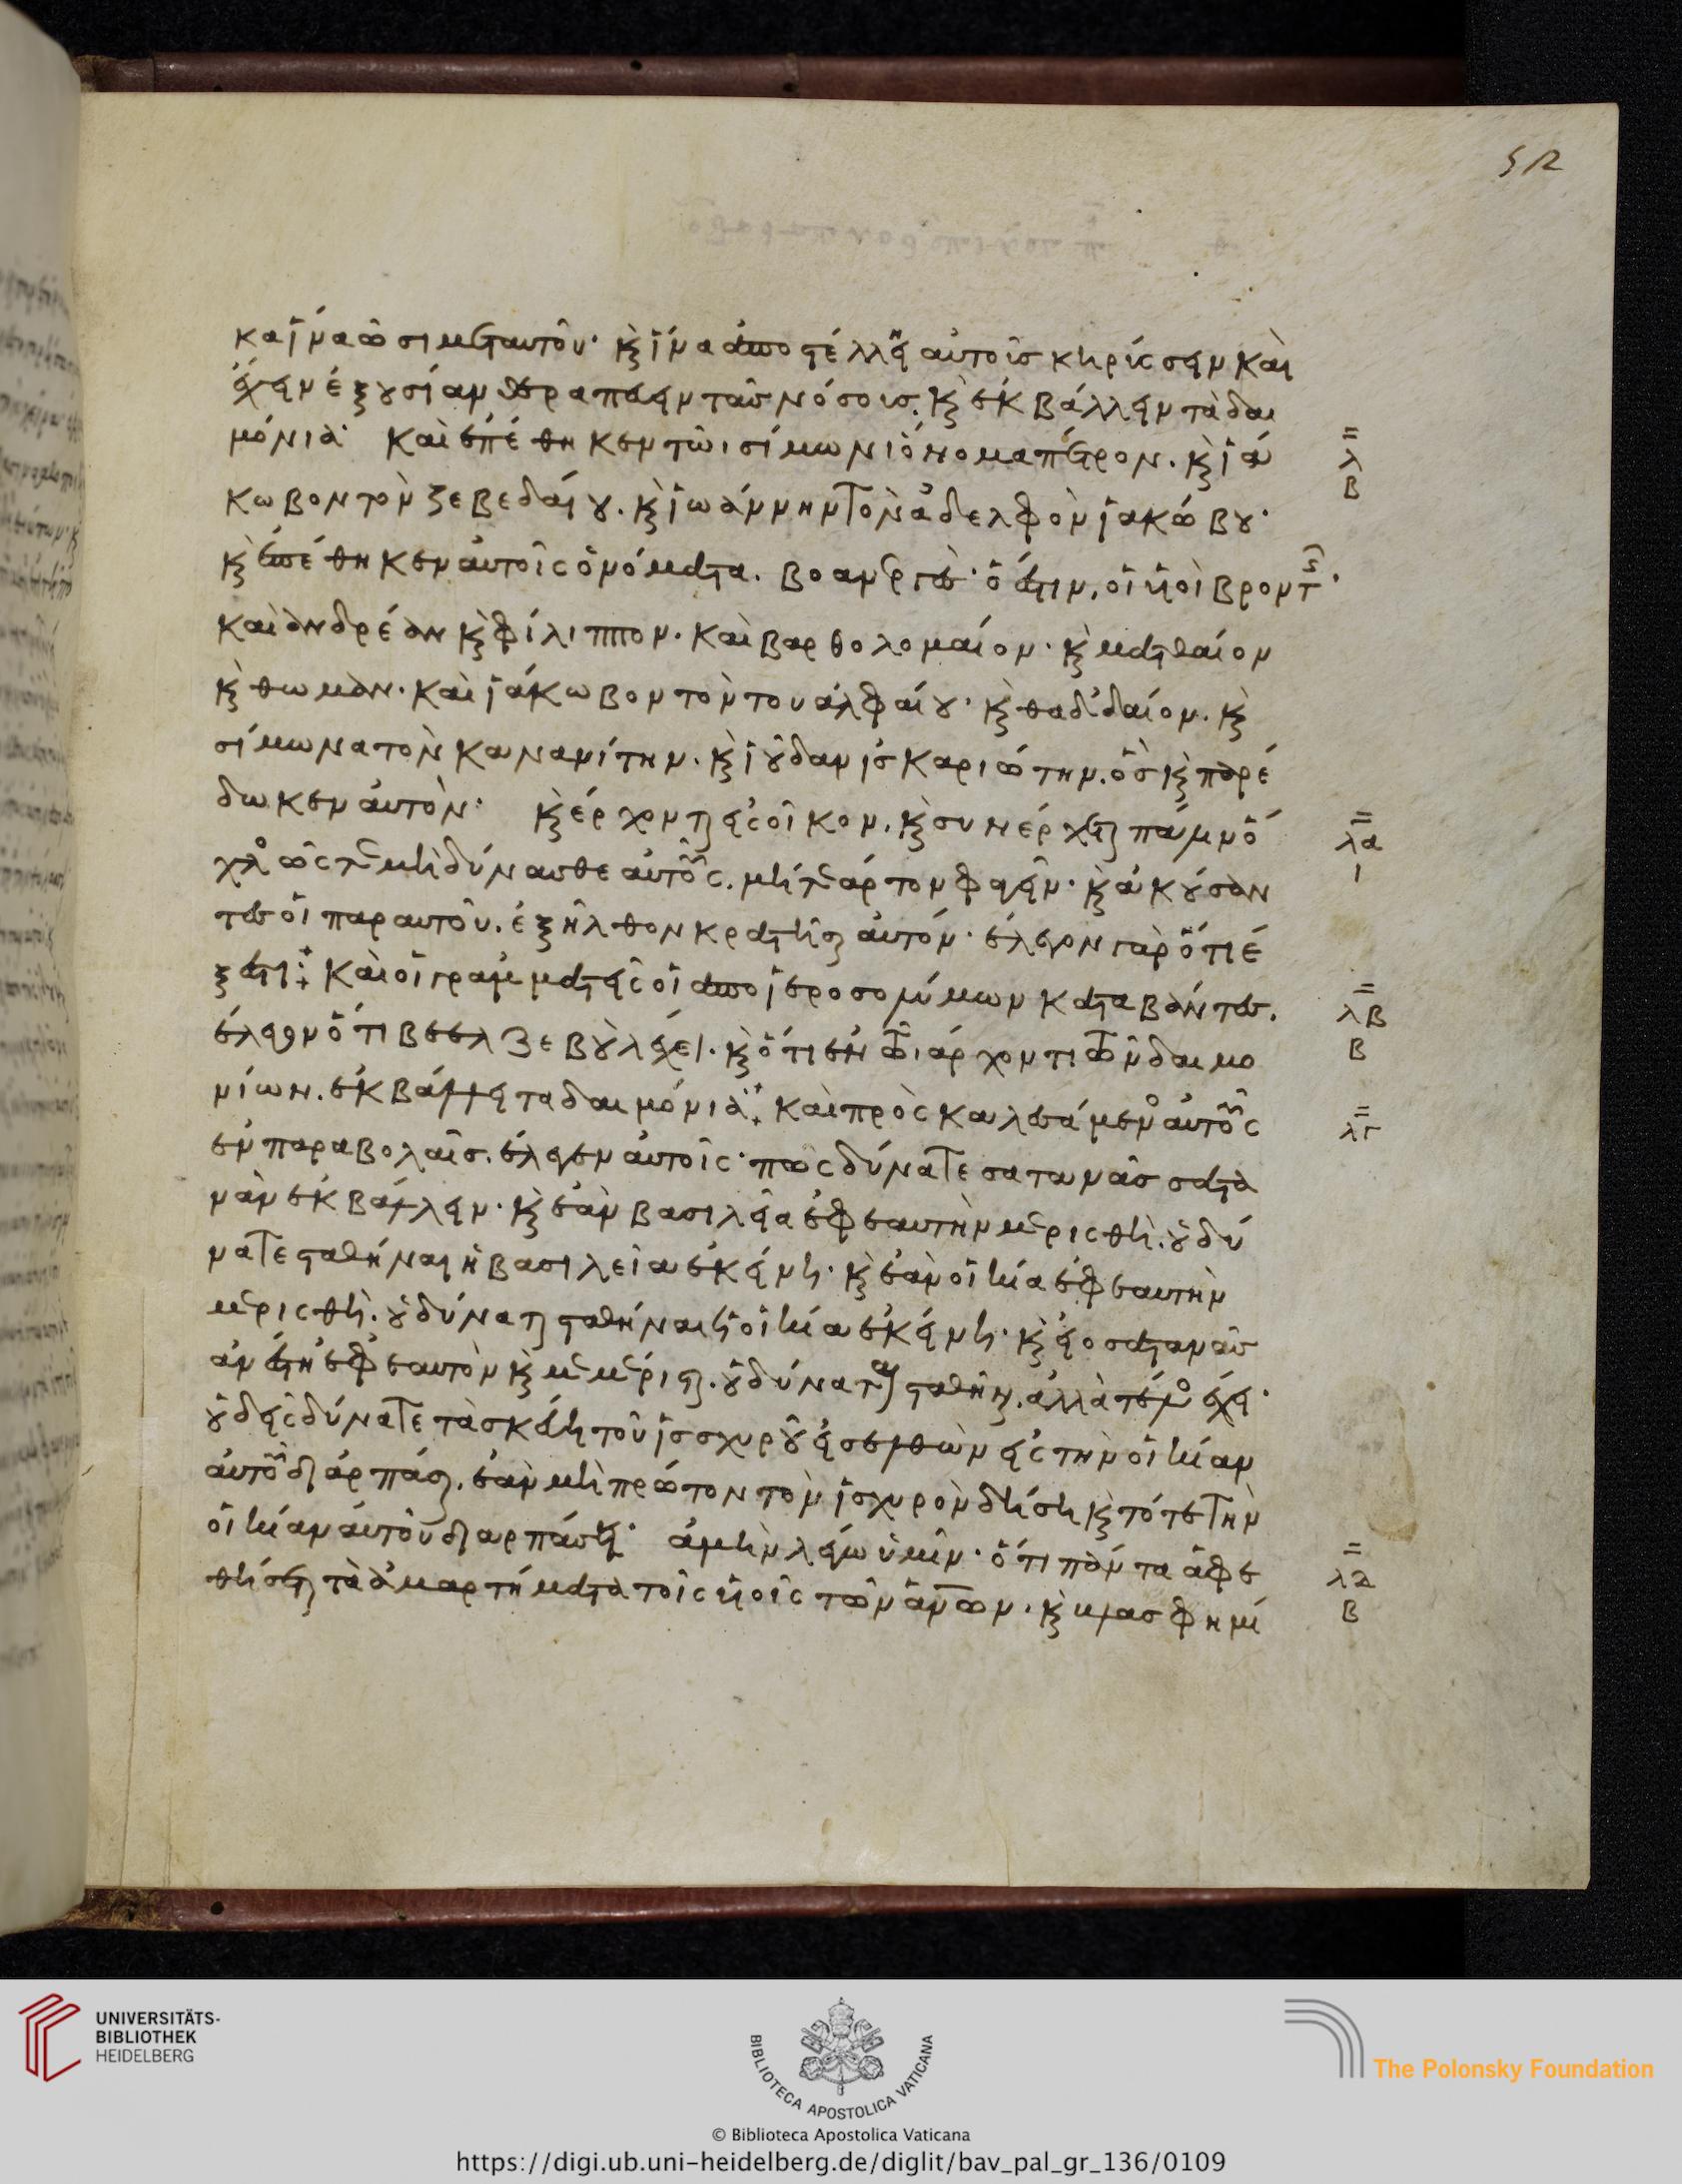 52
και ἵνα ὦσι μετ αὐτοῦ· κ(αὶ) ἵνα ἀποστέλλῃ αὐτοῖς κηρύσσειν καὶ
ἔχειν ἐξουσίαν θεραπεύειν τὰς νόσους. κ(αὶ) ἐκβάλλειν τὰ δαι
μόνια· καὶ ἐπέθηκεν τῶι σίμωνι ὄνομα πέτρον. κ(αὶ) ἰά
λ
β
κωβον τὸν ζεβεδαίου. κ(αὶ) ἰωάννην τὸν ἀδελφὸν ἰακώβου·
κ(αὶ) ἐπέθηκεν αὐτοῖς ὀνόματα. βοανεργὲς· ὅ ἐστιν, οἱ υἱοὶ βροντῆς·
καὶ ἀνδρέαν κ(αὶ) φίλιππον. καὶ βαρθολομαίον. κ(αὶ) ματθαίον
κ(αὶ) θωμὰν. καὶ ἰάκωβον τὸν του ἀλφαίου· κ(αὶ) θαδδαίον. κ(αὶ)
σίμωνα τὸν κανανίτην. κ(αὶ) ἰούδαν ἰσκαριώτην. ὃς κ(αὶ) παρέ
δωκεν αὐτὸν· κ(αὶ) ἔρχονται εἰς οἶκον. κ(αὶ) συνέρχεται πάλιν ὁ
λα
ι
χλος ὥστε μὴ δύνασθε αὐτοὺς. μήτε ἄρτον φαγεῖν· κ(αὶ) ἀκούσαν
τες οἱ παρ αυτοῦ. ἐξῆλθον κρατῆσαι αὐτόν· ἔλεγον γὰρ ὅτι ἐ
ξέστη· καὶ οἱ γραμματεῖς οἱ ἀπο ἱεροσολύμων καταβάντες.
λβ
β
ἔλεγον ὅτι βεελζεβοὺλ ἔχει. κ(αὶ) ὅτι ἐν τῶι ἄρχοντι τῶν δαιμο
νίων. ἐκβάλλει τα δαιμόνια· καὶ προσκαλεσάμενος αὐτοὺς
λγ
ἐν παραβολαῖς. ἔλεγεν αὐτοῖς· πῶς δύναται σατανᾶς σατα
νὰν ἐκβάλλειν· κ(αὶ) ἐὰν βασιλεία ἐφ ἑαυτὴν μερισθῆ. οὐ δύ
ναται σταθῆναι ἡ βασιλεία ἐκείνη· κ(αὶ) ἐὰν οἰκία ἐφ ἑαυτὴν
μερισθῆ. οὐ δύναται σταθῆναι ἡ οἰκία ἐκείνη· κ(αὶ) εἰ ο σατανᾶς
ἀνέστη ἐφ ἑαυτὸν κ(αὶ) μεμέρισται. οὐ δύναται σταθῆναι. ἀλλὰ τέλος ἔχει·
οὐδεὶς δύναται τὰ σκεύη τοῦ ἰσχυροῦ εἰσελθὼν εἰς τὴν οἰκίαν
αὐτοῦ διαρπάσαι. ἐὰν μὴ πρῶτον τὸν ἰσχυρὸν δήση κ(αὶ) τότε τὴν
οἰκίαν αὐτοῦ διαρπάση· ἀμὴν λέγω ὑμῖν· ὅτι πάντα ἀφε
λδ
β
θήσεται τὰ ἁμαρτήματα τοῖς υἱοῖς τῶν ἀνων. κ(αὶ) βλασφημί
UNIVERSITÄTS-
BIBLIOTHEK
HEIDELBERG
BIBLIOTECA APOSTOLICA VATICANA
The Polonsky Foundation
© Biblioteca Apostolica Vaticana
https://digi.ub.uni-heidelberg.de/diglit/bav_pal_gr_136/0109